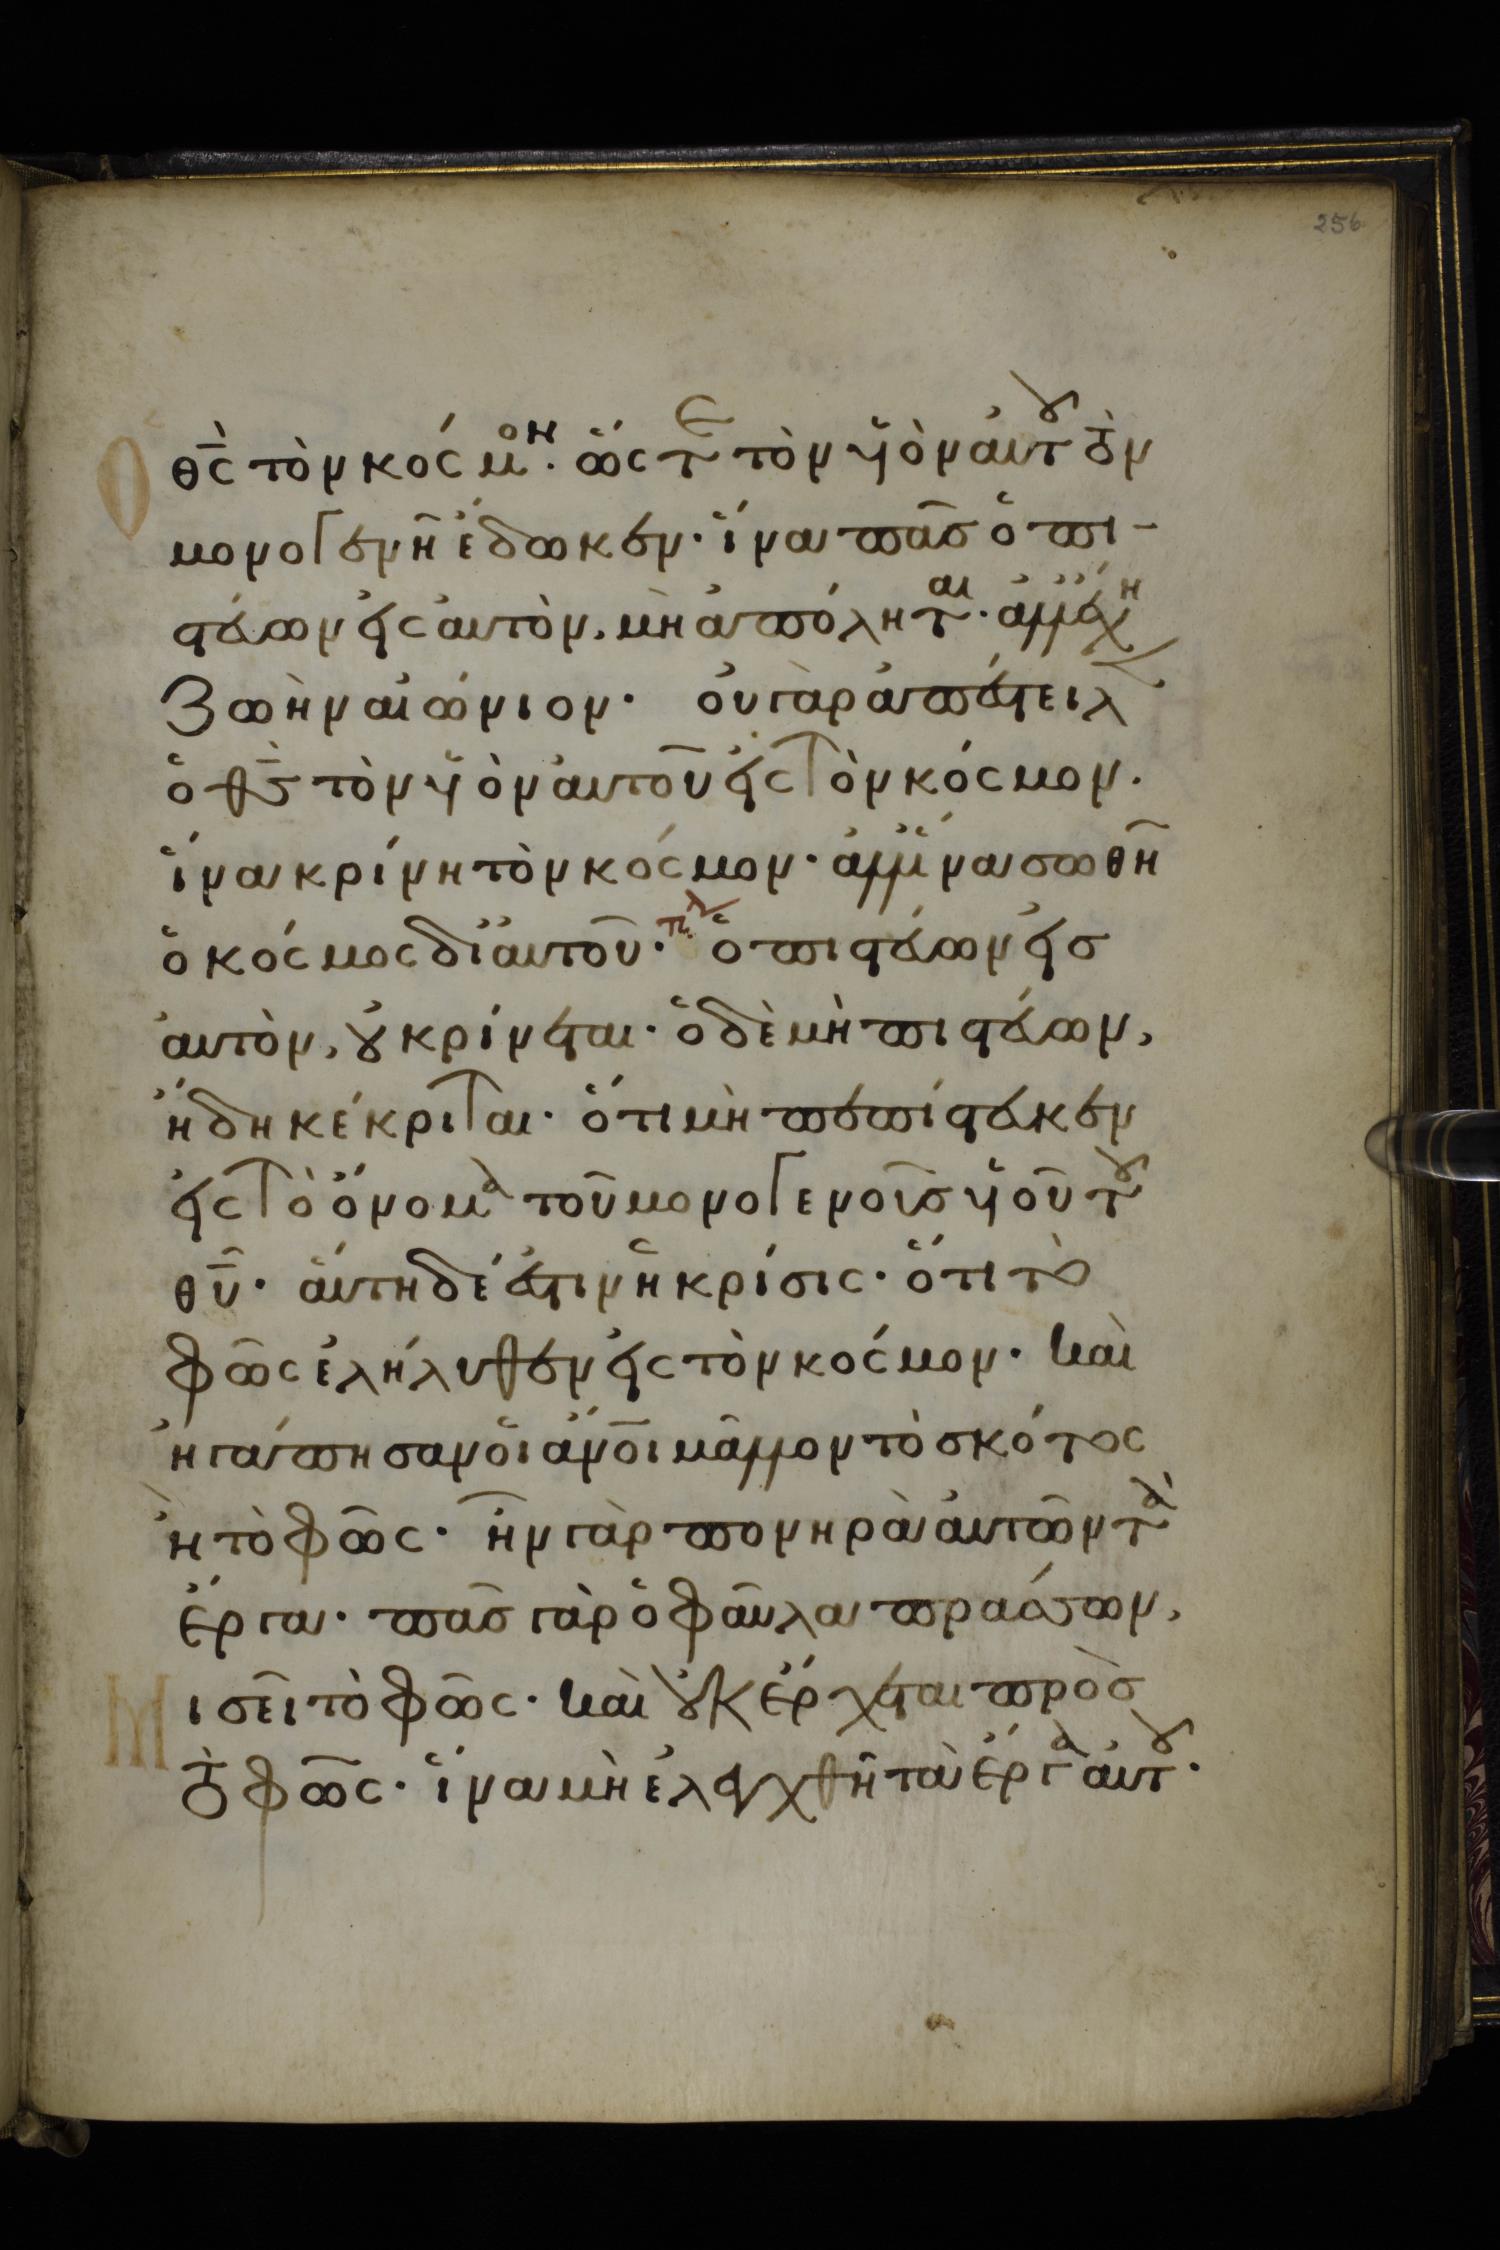 256
Ὁ θς̅ τὸν κόσμον· ὥστε τὸν υἱὸν αὐτοῦ τὸν
μονογενῆ ἔδωκεν· ἵνα πᾶσ ὁ πι-
στεύων εἰς αὐτὸν, μὴ ἀπόληται· ἀλλ' ἔχη
ζωὴν αἰώνιον· οὐ γὰρ ἀπέστειλε
ὁ θς̅ τὸν υἱὸν αὐτοῦ εἰς τὸν κόσμον·
ἵνα κρίνη τὸν κόσμον· ἀλλ' ἵνα σωθῆ
ὁ κόσμος δι' αὐτοῦ· ὁ πιστεύων εἰσ
αὐτὸν, οὐ κρίνεται· ὁ δὲ μὴ πιστεύων,
ἤδη κέκριται· ὅτι μὴ πεπίστευκεν
εἰς τὸ ὄνομα τοῦ μονογενοῦσ υἱοῦ τοῦ
θυ̅· αὕτη δέ ἐστιν ἡ κρίσις· ὅτι τὸ
φῶς ἐλήλυθεν εἰς τὸν κόσμον· καὶ
ἠγάπησαν οἱ ἄνοι μᾶλλον τὸ σκότος
ἢ τὸ φῶς· ἦν γὰρ πονηρὰ αὐτῶν τὰ
ἔργα· πᾶσ γὰρ ὁ φαῦλα πράσσων,
Μισεῖ τὸ φῶς· καὶ οὐκ ἔρχεται πρὸσ
τὸ φῶς· ἵνα μὴ ἐλεγχθῆ τὰ ἔργα αὐτοῦ·